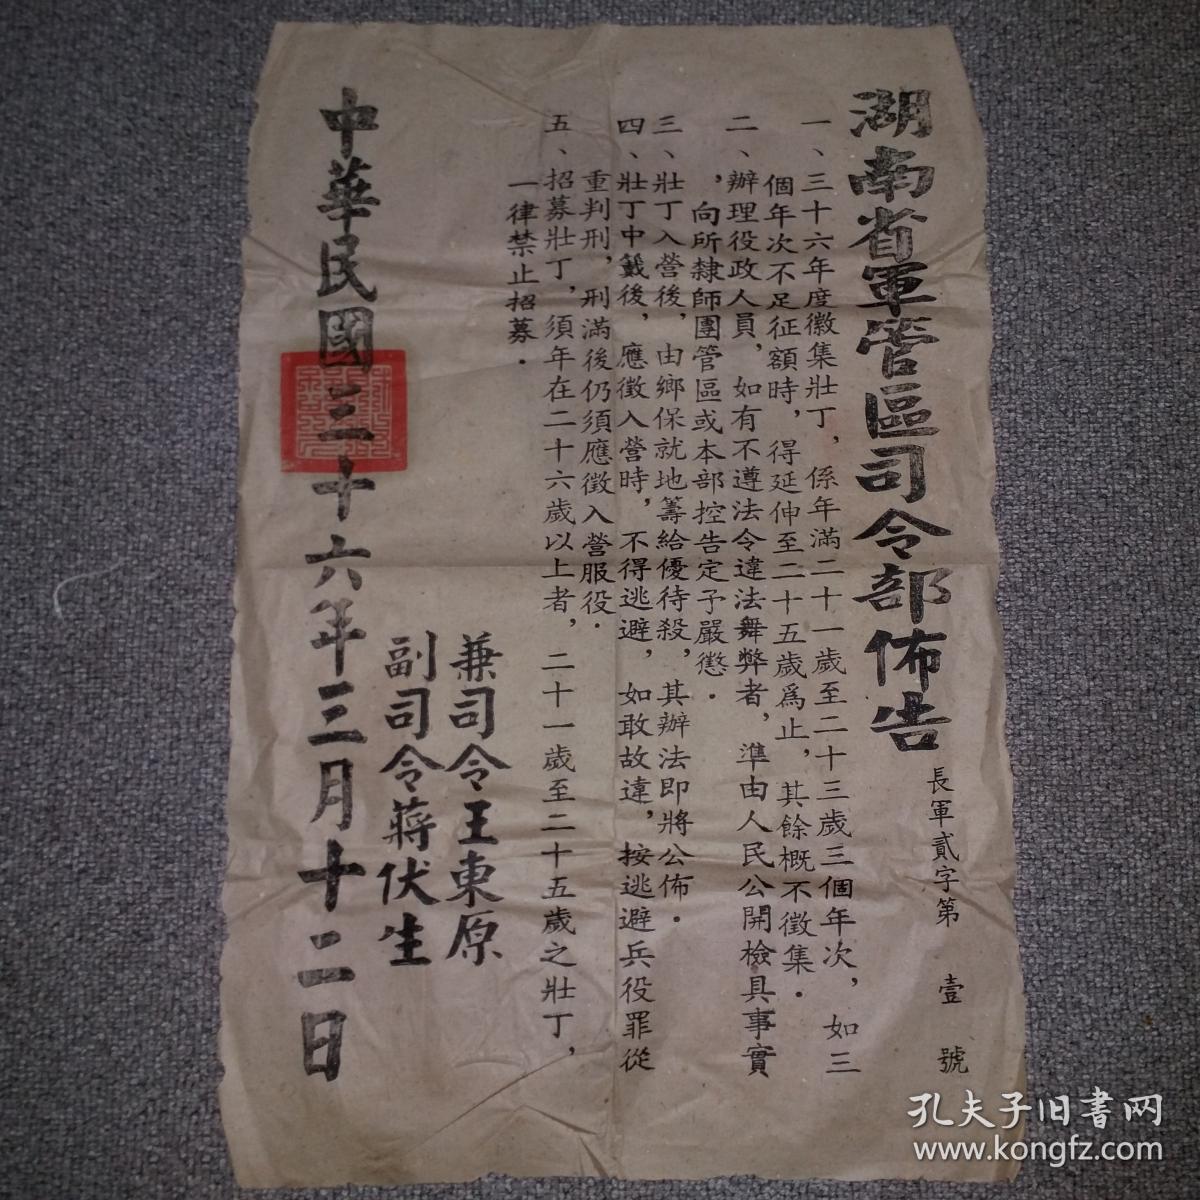 湖南省軍管區司令部佈告
長軍貳字第 壹 號
一、三十六年度徵集壯丁，係年滿二十一歲至二十三歲三個年次，如三
個年次不足征額時，得延伸至二十五歲爲止，其餘概不徵集．
二、辦理役政人員，如有不遵法令違法舞弊者，準由人民公開檢具事實
，向所隸師團管區或本部控告定予嚴懲．
三、壯丁入營後，由鄉保就地籌給優待殺，其辦法即將公佈．
四、壯丁中籤後，應徵入營時，不得逃避，如敢故違，按逃避兵役罪從
重判刑，刑滿後仍須應徵入營服役．
五、招募壯丁，須年在二十六歲以上者，二十一歲至二十五歲之壯丁，
一律禁止招募．
兼司令王東原
副司令蔣伏生
中華民國三十六年三月十二日
孔夫子旧书网
www.kongfz.com